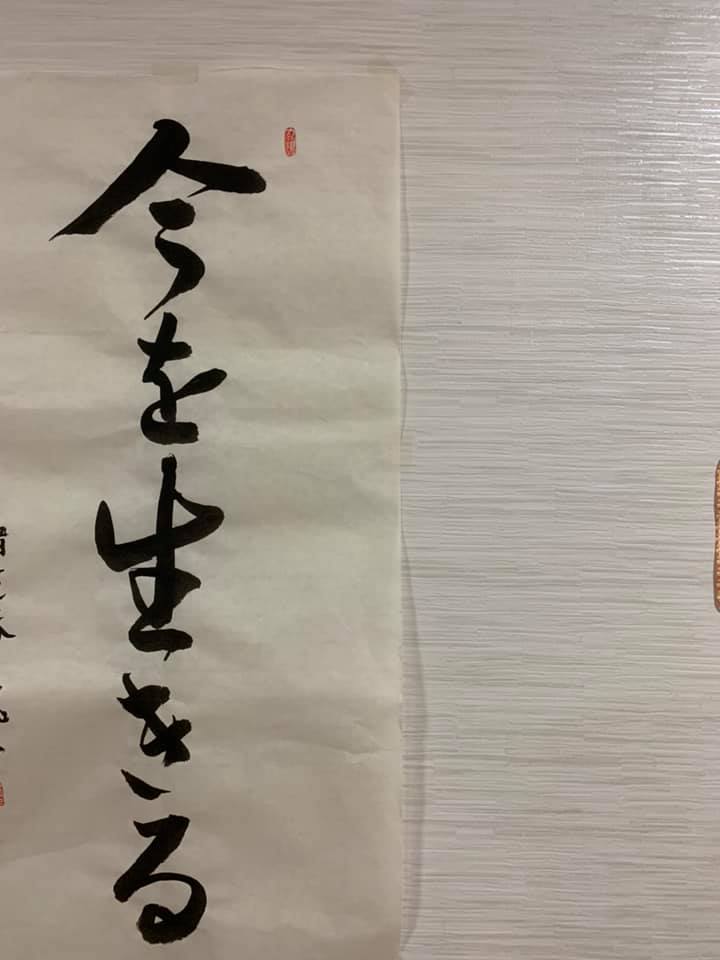 今を生きる